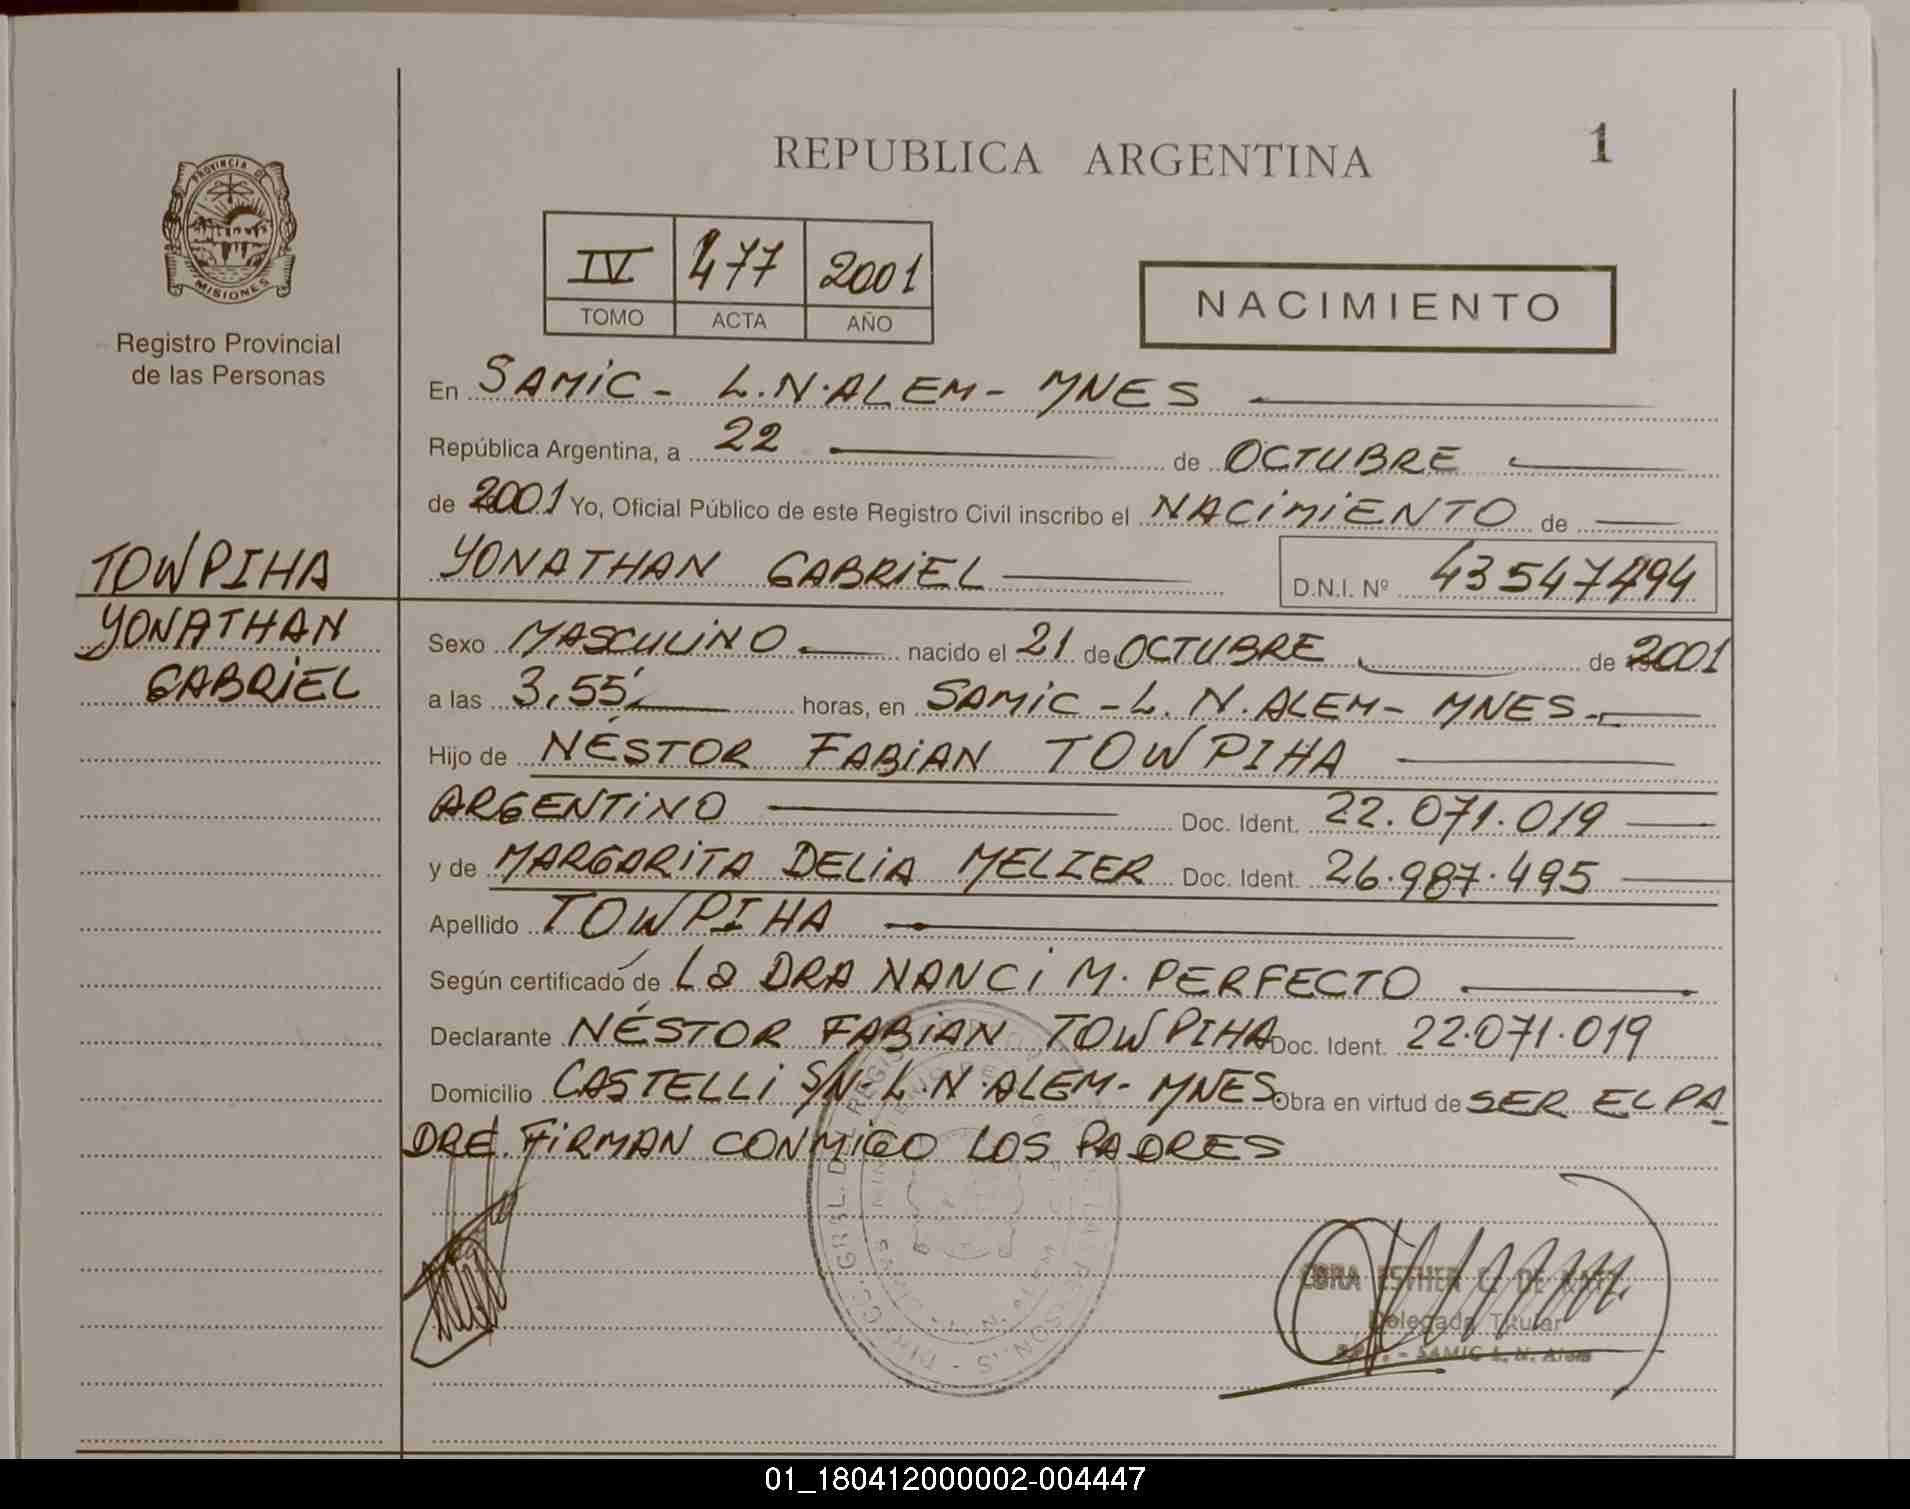 REPUBLICA ARGENTINA
1
PROVINCIA DE
MISIONES
Registro Provincial
de las Personas
IV 477 2001
TOMO ACTA AÑO
NACIMIENTO
En SAMIC - L.N.ALEM - MNES
República Argentina, a 22 de OCTUBRE
de 2001 Yo, Oficial Público de este Registro Civil inscribo el NACIMIENTO de
YONATHAN GABRIEL D.N.I. Nº 43547494
TOWPIHA
YONATHAN
GABRIEL
Sexo MASCULINO nacido el 21 de OCTUBRE de 2001
a las 3,55 horas, en SAMIC - L. N. ALEM - MNES.
Hijo de NÉSTOR FABIAN TOWPIHA
ARGENTINO Doc. Ident. 22.071.019
y de MARGARITA DELIA MELZER Doc. Ident. 26.987.495
Apellido TOWPIHA
Según certificado de La DRA NANCI M. PERFECTO
Declarante NÉSTOR FABIAN TOWPIHA Doc. Ident. 22.071.019
Domicilio CASTELLI S/N - L.N.ALEM - MNES. Obra en virtud de SER EL PA
DRE. FIRMAN CONMIGO LOS PADRES
ESTHER C. DE
Delegada Titular
SAMIC L. N. Alem
01_180412000002-004447